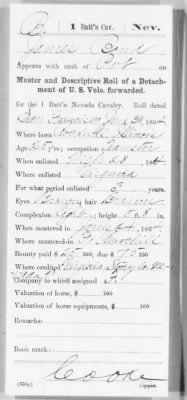 B | 1 Batt'n Cav. | Nev.
James
Appears with rank of Pvt on
Muster and Descriptive Roll of a Detach-
ment of U. S. Vols. forwarded.
for the 1 Batt'n Nevada Cavalry. Roll dated
San Francisco June 30, 1864
Where born Illinois
Age 25 y'rs; occupation Teamster
When enlisted 28, 1864
Where enlisted Virginia
For what period enlisted 3 years.
Eyes Brown; hair Brown
Complexion ; height 5 ft. 8 in.
When mustered in June 24, 1864
Where mustered in Ft. Churchill
Bounty paid $25 100; due $75 100
Where credited Nevada Storey Co.
Company assigned
Valuation of horse, $ 100
Valuation of horse equipments, $ 100
Remarks:
Book mark:
Cooke
Copyist.